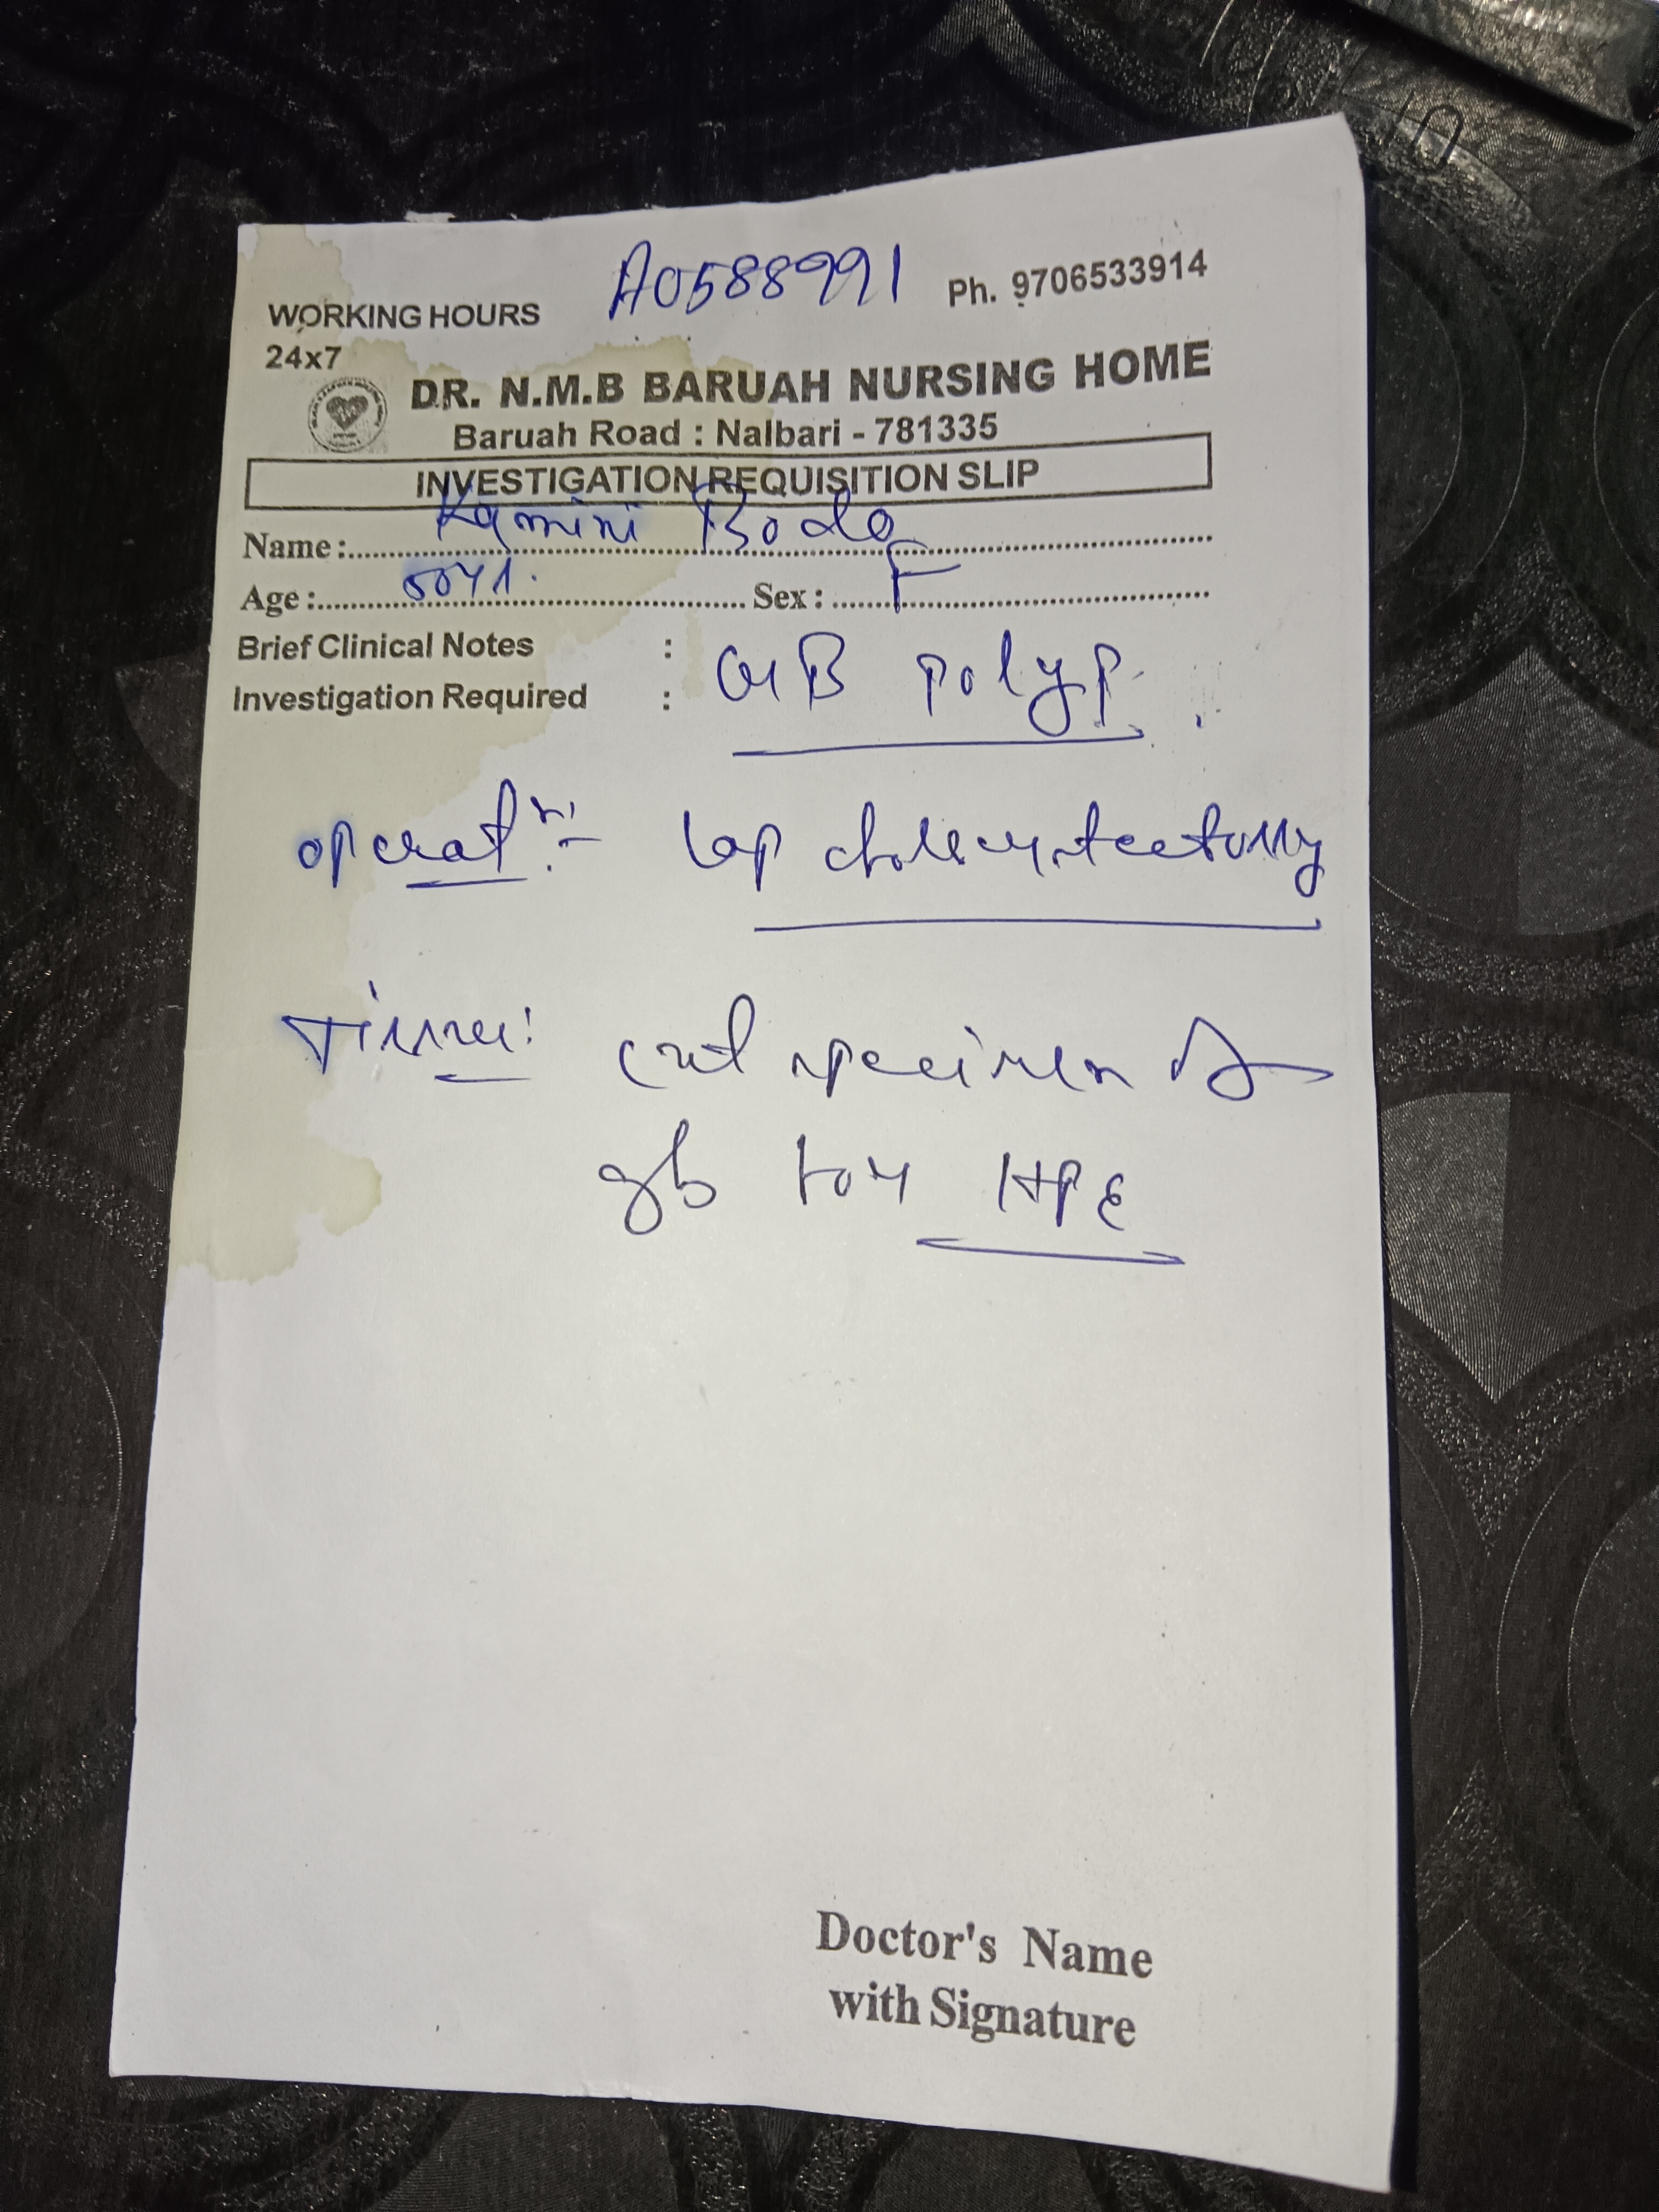 A0588991 Ph. 9706533914
WORKING HOURS
24x7
DR. N.M.B BARUAH NURSING HOME
Baruah Road : Nalbari - 781335
INVESTIGATION REQUISITION SLIP
Name :. Kamini Bodo
Age :. Sex : F
Brief Clinical Notes :
Investigation Required : GB polyp.
operatn:- Lap cholecystectomy
Tissue: cut specimen of
gb for HPE
Doctor's Name
with Signature